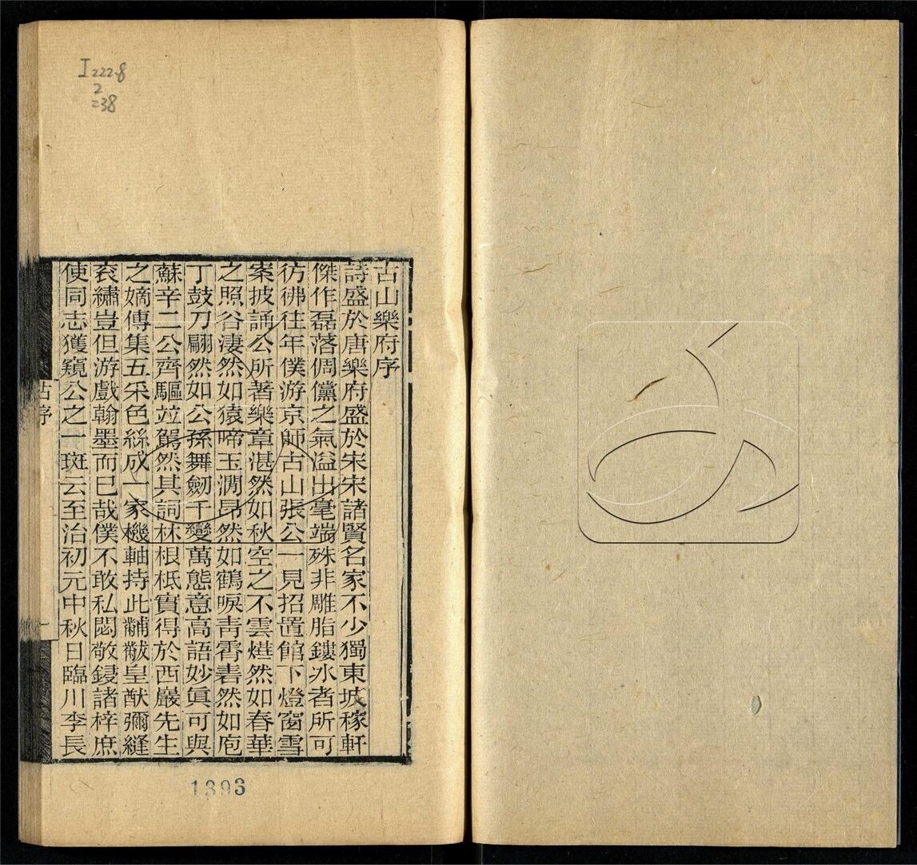 古山樂府序
詩盛於唐樂府盛於宋宋諸賢名家不少獨東坡稼軒
傑作磊落倜儻之氣溢出毫端殊非雕脂鏤冰者所可
彷彿往年僕游京師古山張公一見招置館下燈窗雪
案披誦公所著樂章湛然如秋空之不雲爗然如春華
之照谷淒然如猿啼玉澗昂然如鶴唳青霄砉然如庖
丁鼓刀翩然如公孫舞劒千變萬態意高語妙眞可與
蘇辛二公齊驅竝駕然其詞林根柢實得於西巖先生
之嫡傳集五采色絲成一家機軸持此黼黻皇猷彌縫
袞繡豈但游戲翰墨而已哉僕不敢私閟敬鋟諸梓庶
使同志獲窺公之一斑云至治初元中秋日臨川李長
古序
一
I222.8
2
=38
1393